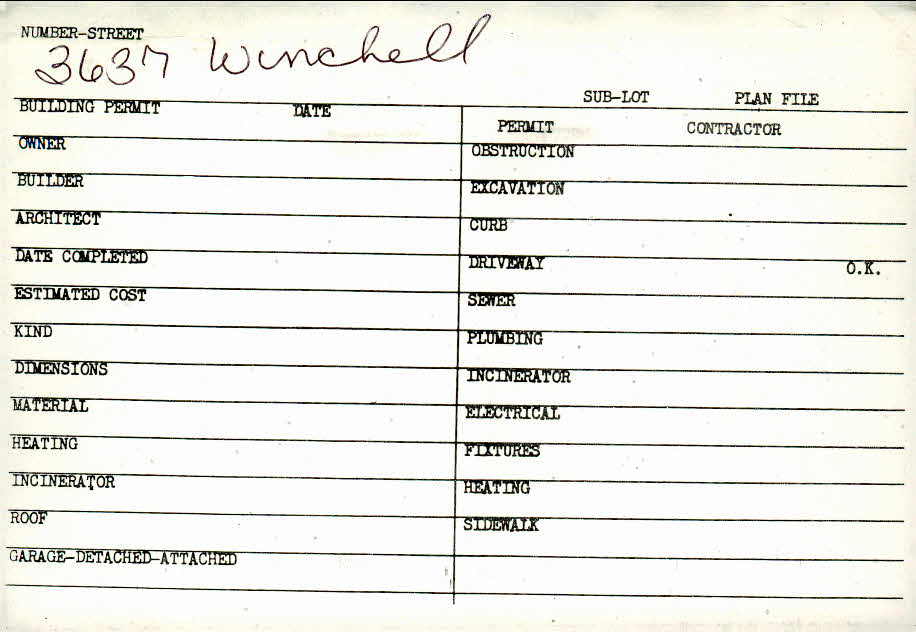 NUMBER-STREET
3637 Winchell
SUB-LOT PLAN FILE
BUILDING PERMIT DATE
PERMIT CONTRACTOR
OWNER
OBSTRUCTION
BUILDER
EXCAVATION
ARCHITECT
CURB
DATE COMPLETED
DRIVEWAY O.K.
ESTIMATED COST
SEWER
KIND
PLUMBING
DIMENSIONS
INCINERATOR
MATERIAL
ELECTRICAL
HEATING
FIXTURES
INCINERATOR
HEATING
ROOF
SIDEWALK
GARAGE-DETACHED-ATTACHED